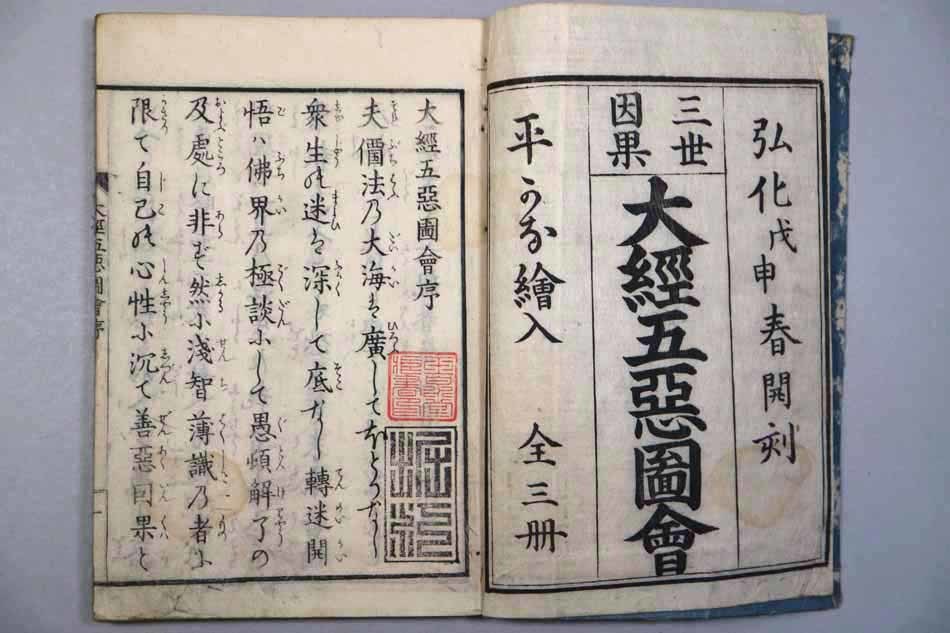 弘化戊申春開刻
三世
因果
大經五惡圖會
平かな繪入 全三冊
大經五惡圖會序
夫佛法乃大海は廣してほとりなし
衆生の迷は深して底なし轉迷開
悟ハ佛界乃極談にして愚頓解了の
及處に非ず然に淺智薄識乃者に
限て自己の心性に沉て善惡因果と
大經五惡圖會序